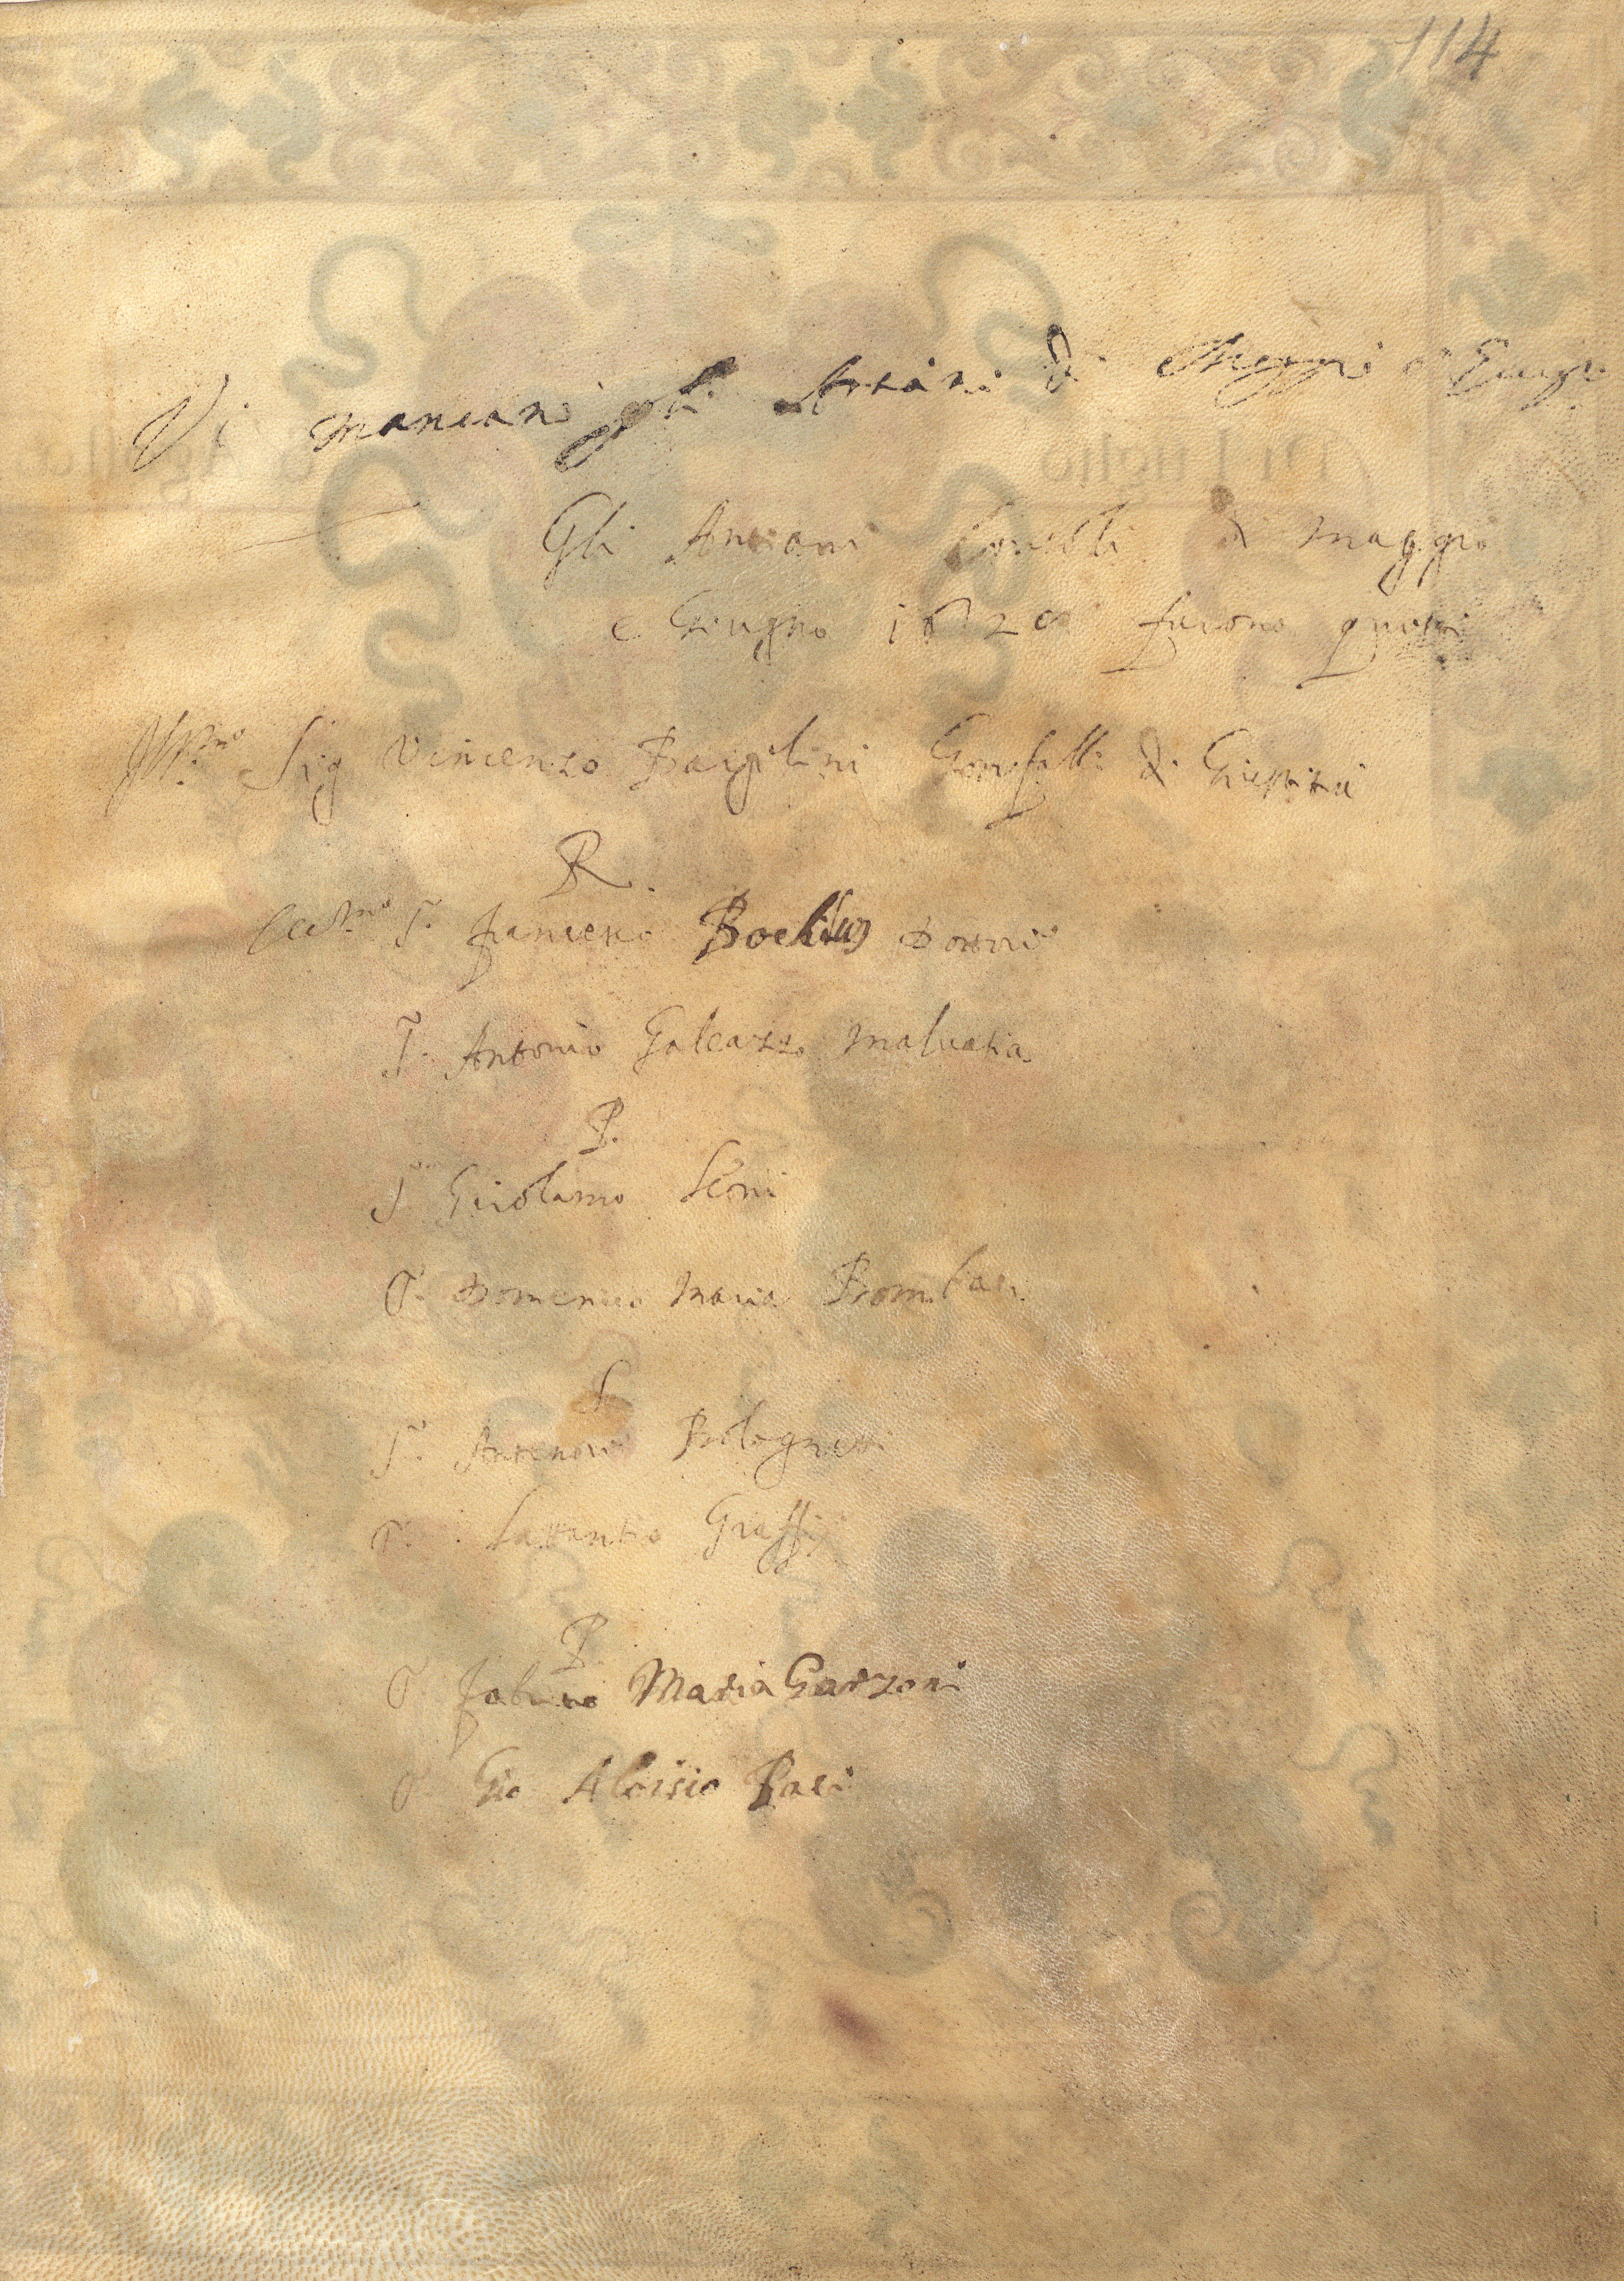 114
Vi mancani gli Antiani di Maggio e Giugn
Gli Antiani Consoli di maggio
e Giugno 1620 furono questi
Ill.mo Sig Vincenzo Bargelini Gonfall: di Giustitia
R.
Ecc.mo S.r Francesco Bochius Dottore
S.r Antonio Galeazzo Maluatia
P.
S.r Girolamo Leoni
S.r Domenico Maria Bombaci
S.
S.r Antenore Bolognetti
S.r Lattantio Graffi
P.
S.r Fabritio Maria Garzoni
S.r Gio Aloisio Pasi